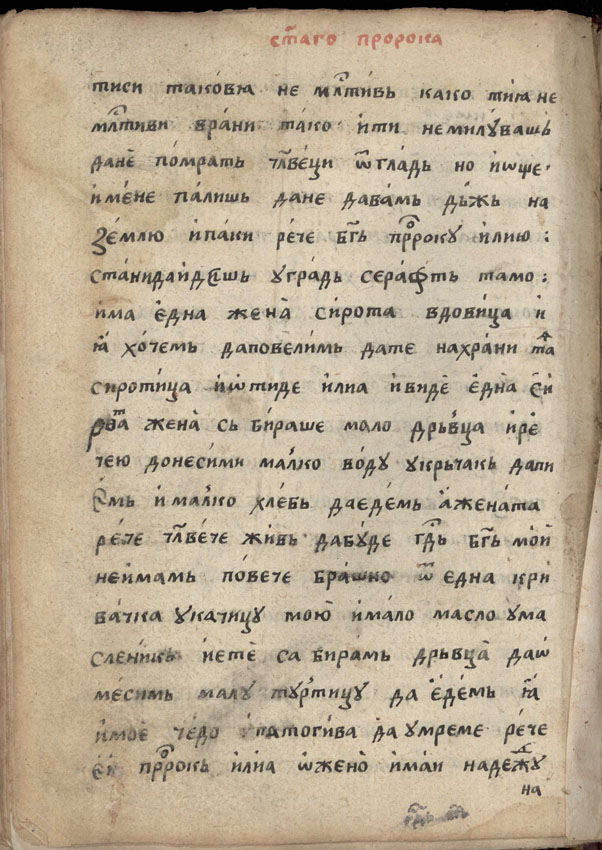 ст҃аго пророка
тиси такѡвꙗ не мл҃тивь како тиꙗ не
мл҃тиви врани тако и ти немилувашь
дане помрать чл҃веци ѿ гладь но ище
имене палишь дане давамь дьжь на
землю ипаки рече бг҃ь пр҃року илию :
стани даидешь уградь серафть тамо :
има една жена сирота вдовица и
ꙗ хочемь даповелимь дате нахрани таꙗ
сиротица иѿтиде илиа ивиде една си
рота жена сьбираше мало дрьвца ире
чею донесими малко воду укрьчакь дапи
емь ималко хлебь даедемь ажената
рече чл҃вече живь дабуде гд҃ь бг҃ь мои
неимамь повече брашно ѿ една кри
вачка укачицу мою имало масло ума
сленикь иете сабирамь дрьвца даѡ
месимь малу туртицу да едемь ꙗ
имое чедо ипатогива да умреме рече
еи пр҃рокь илиа ѡжено имаи надеждꙋ
на